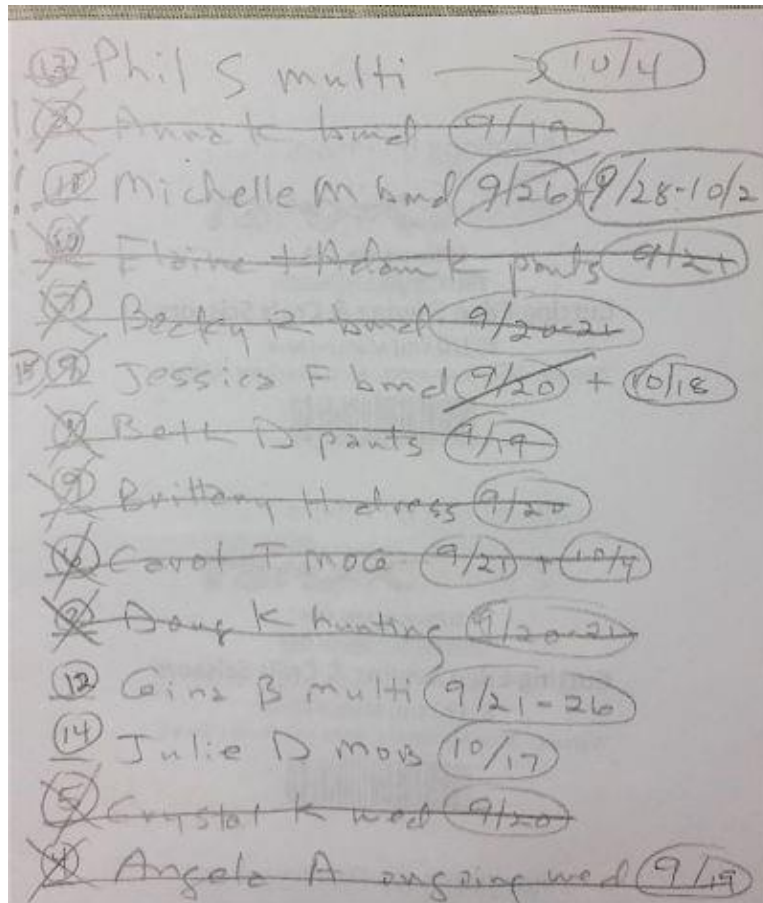 (13) Phil S multi → 10/4
Anna K bmd 9/19
(11) Michelle M bmd 9/26 + 9/28-10/2
(10) Elaine + Adam K pants 9/21
(7) Becky R bmd 9/20-21
Jessica F bmd 9/20 + 10/18
Beth D pants 9/19
(9) Brittany H dress 9/20
Carol T MOG 9/21 +
Doug K hunting 9/20-21
(12) Gina B multi 9/21-26
(14) Julie D MOB 10/17
(5) Crystal K wed 9/20
(4) Angela A ongoing wed 9/19